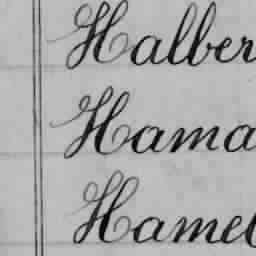 Halber
Hama
Hamel